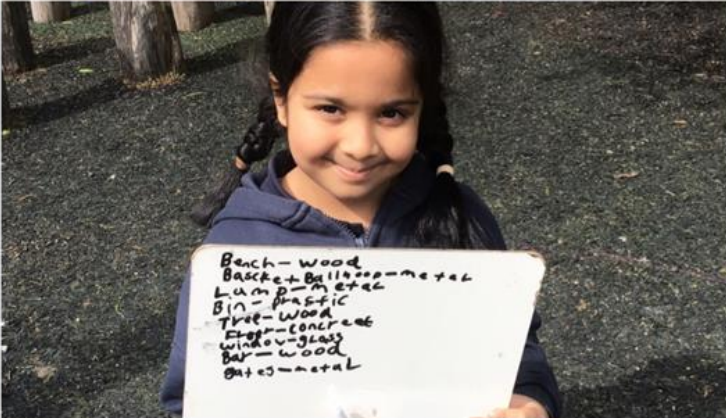 Bench - wood
Bascket Ball hoop - metal
Lamp - metal
Bin - Plastic
Tree - Wood
Floor - concreet
window - glass
Bar - wood
Gates - metal